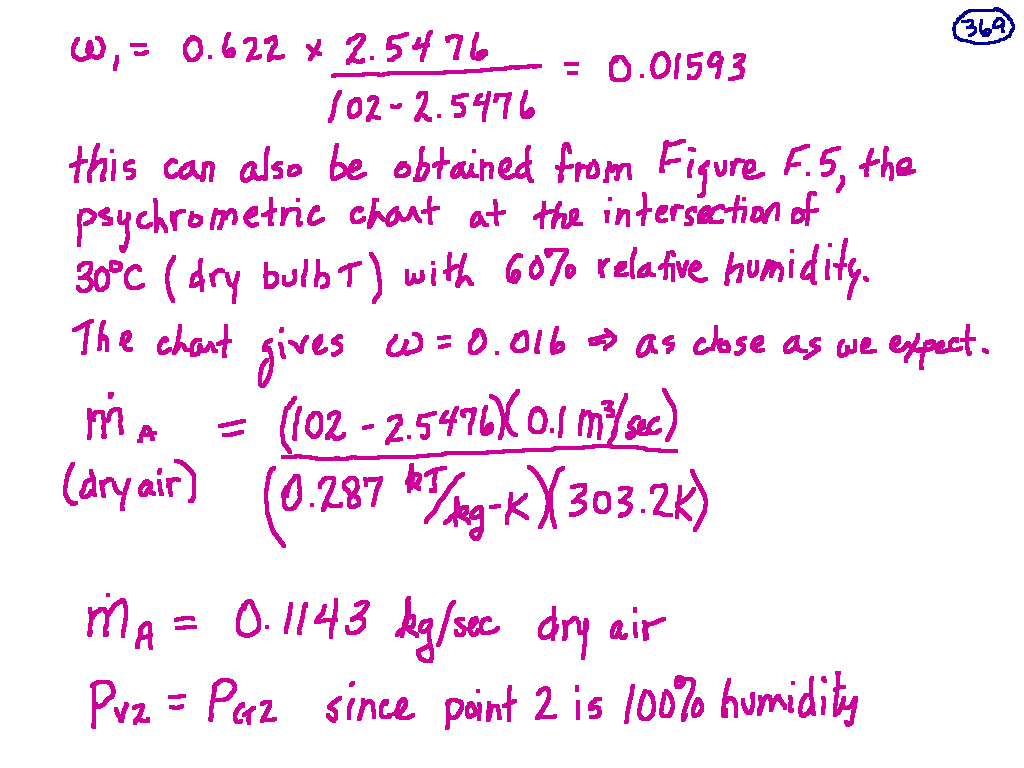 369
ω₁ = 0.622 × 2.5476 / (102 - 2.5476) = 0.01593
this can also be obtained from Figure F.5, the
psychrometric chart at the intersection of
30°C (dry bulb T) with 60% relative humidity.
The chart gives ω = 0.016 ⇒ as close as we expect.
ṁ_A = (102 - 2.5476)(0.1 m³/sec)
(dry air) (0.287 kJ/kg-K)(303.2K)
ṁ_A = 0.1143 kg/sec dry air
P_V2 = P_G2 since point 2 is 100% humidity